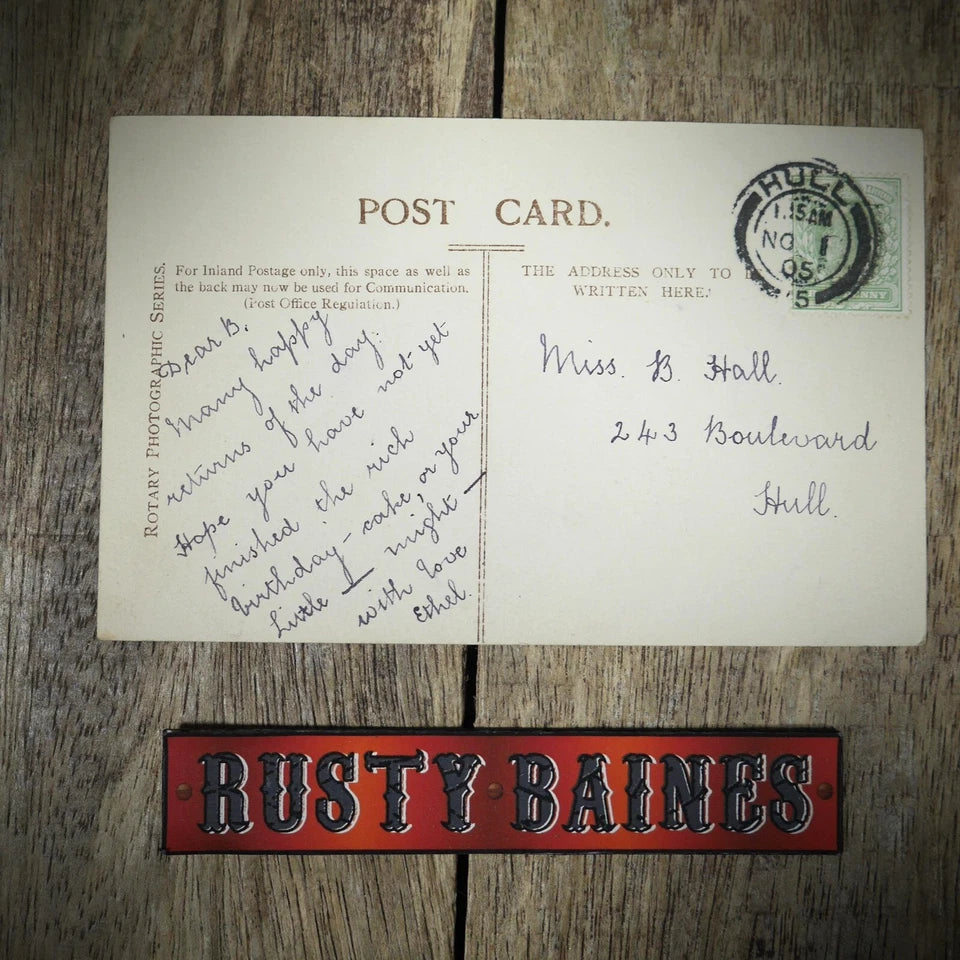 POST CARD.
ROTARY PHOTOGRAPHIC SERIES.
For Inland Postage only, this space as well as
the back may now be used for Communication.
(Post Office Regulation.)
Dear B.
Many happy
returns of the day.
Hope you have not yet
finished the rich
birthday-cake or your
little — might —
with love
Ethel.
THE ADDRESS ONLY TO
WRITTEN HERE.
Miss. B. Hall.
243 Boulevard
Hull.
HULL
NO 1
05
5
NNY
RUSTY BAINES